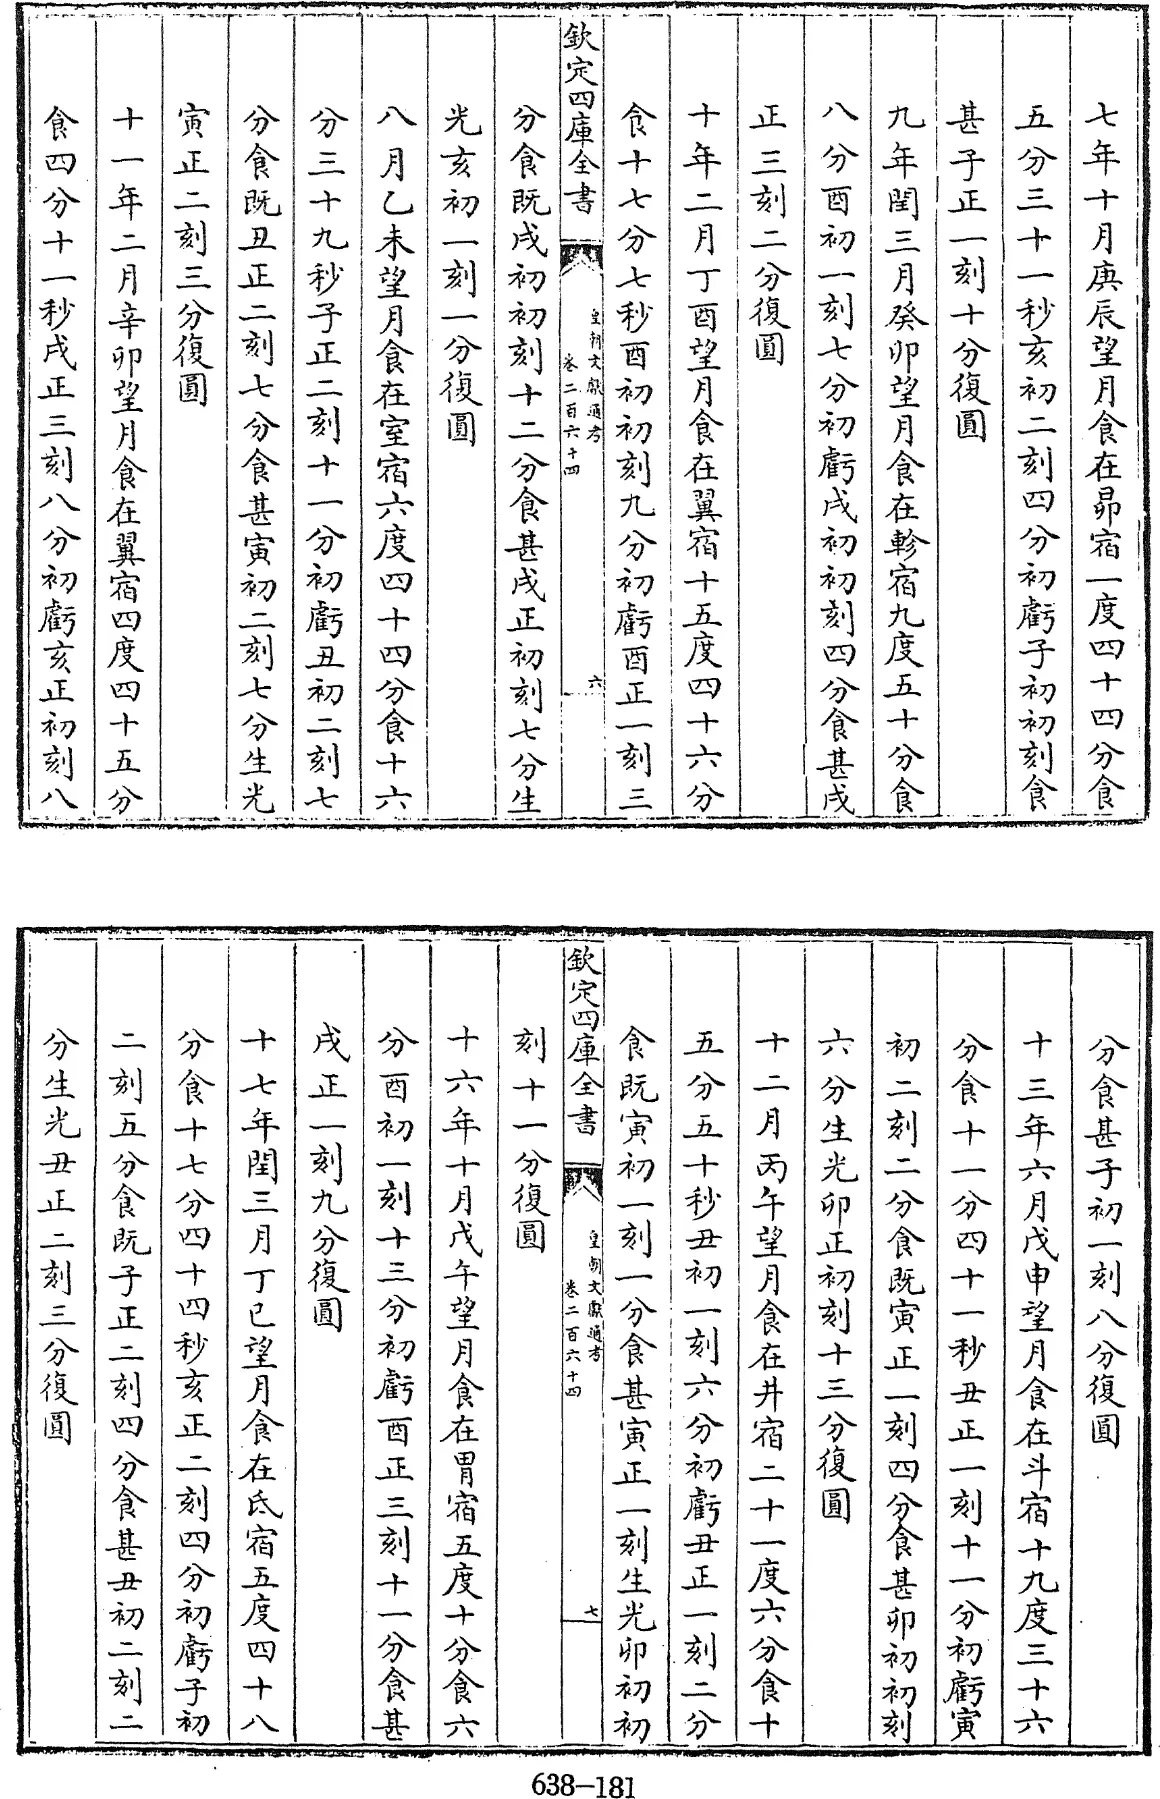 七年十月庚辰望月食在昴宿一度四十四分食
五分三十一秒亥初二刻四分初虧子初初刻食
甚子正一刻十分復圓
九年閏三月癸卯望月食在軫宿九度五十分食
八分酉初一刻七分初虧戌初初刻四分食甚戌
正三刻二分復圓
十年二月丁酉望月食在翼宿十五度四十六分
食十七分七秒酉初初刻九分初虧酉正一刻三
欽定四庫全書
皇朝文獻通考
卷二百六十四
六
分食既戌初初刻十二分食甚戌正初刻七分生
光亥初一刻一分復圓
八月乙未望月食在室宿六度四十四分食十六
分三十九秒子正二刻十一分初虧丑初二刻七
分食既丑正二刻七分食甚寅初二刻七分生光
寅正二刻三分復圓
十一年二月辛卯望月食在翼宿四度四十五分
食四分十一秒戌正三刻八分初虧亥正初刻八
分食甚子初一刻八分復圓
十三年六月戊申望月食在斗宿十九度三十六
分食十一分四十一秒丑正一刻十一分初虧寅
初二刻二分食既寅正一刻四分食甚卯初初刻
六分生光卯正初刻十三分復圓
十二月丙午望月食在井宿二十一度六分食十
五分五十秒丑初一刻六分初虧丑正一刻二分
食既寅初一刻一分食甚寅正一刻生光卯初初
欽定四庫全書
皇朝文獻通考
卷二百六十四
七
刻十一分復圓
十六年十月戊午望月食在胃宿五度十分食六
分酉初一刻十三分初虧酉正三刻十一分食甚
戌正一刻九分復圓
十七年閏三月丁巳望月食在氐宿五度四十八
分食十七分四十四秒亥正二刻四分初虧子初
二刻五分食既子正二刻四分食甚丑初二刻二
分生光丑正二刻三分復圓
638-181